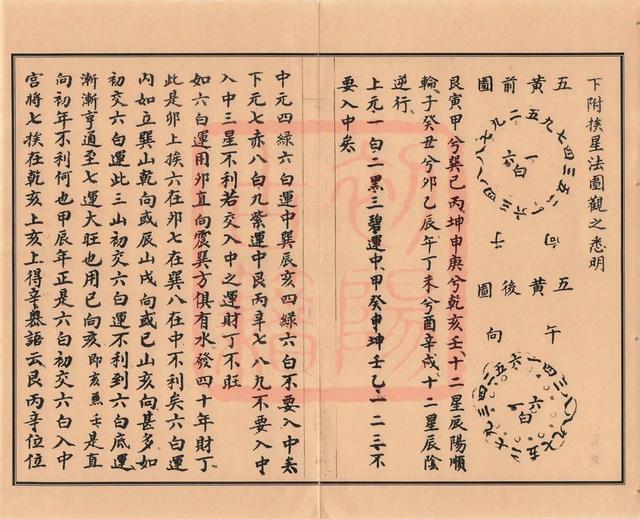 下附挨星法圖觀之悉明
五黃前圖
子向
五黃後圖
午向
六白
六白
艮寅甲兮巽巳丙坤申庚兮乾亥壬十二星辰陽順
輪子癸丑兮卯乙辰午丁未兮酉辛戌十二星辰陰
逆行
上元一白二黑三碧運中甲癸申坤壬乙一二三不
要入中矣
中元四綠六白運中巽辰亥四綠六白不要入中矣
下元七赤八白九紫運中艮丙辛七八九不要入中
入中三星不利若交入中之運財丁不旺
如六白運用卯直向震巽方俱有水發四十年財丁
此是卯上挨六在卯七在巽八在中不利矣六白運
內如立巽山乾向或辰山戌向或巳山亥向甚多如
初交六白運此三山初交六白運不利到六白底運
漸漸亨通至七運大旺也用巳向亥即亥兼壬是直
向初年不利何也甲辰年正是六白初交六白入中
宮將七挨在乾亥上亥上得辛暴語云艮丙辛位位
初陽
古籍